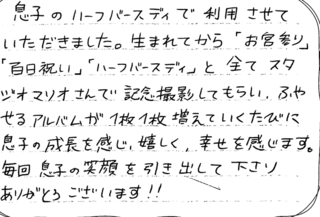 息子のハーフバースディで利用させて
いただきました。生まれてから「お宮参り」
「百日祝い」「ハーフバースディ」と全てスタ
ジオマリオさんで記念撮影してもらい、ふや
せるアルバムが1枚1枚増えていくたびに
息子の成長を感じ、嬉しく、幸せを感じます。
毎回息子の笑顔を引き出して下さり
ありがとうございます!!